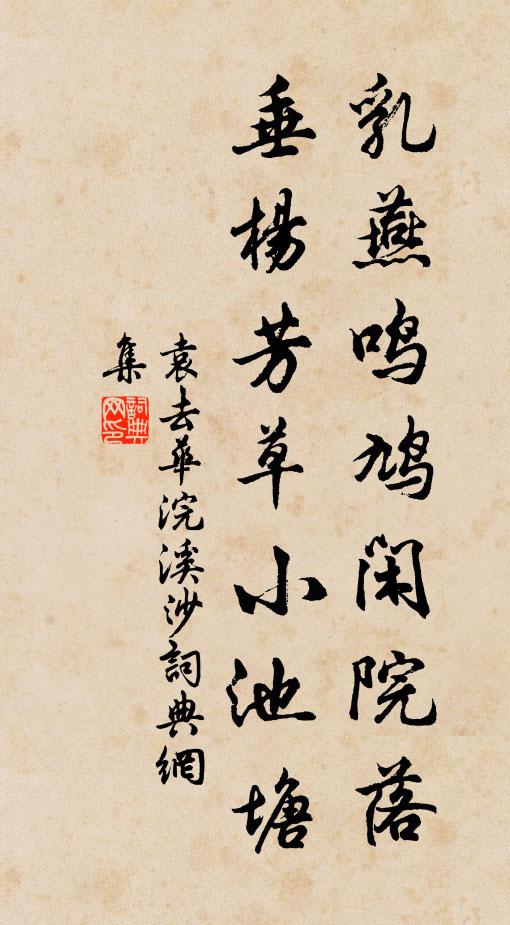 乳燕鸣鸠闲院落
垂楊芳草小池塘
袁去華浣溪沙詞典網
集
詞典网印